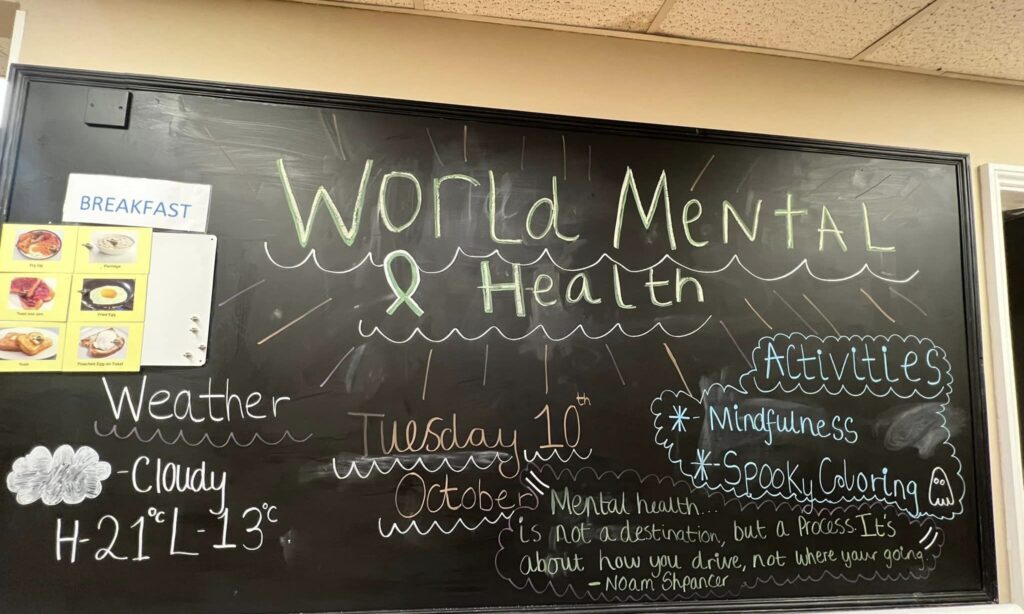 BREAKFAST
World Mental
Health
Porridge
Fried Egg
Toast
Poached Egg on Toast
Weather
-Cloudy
H-21°C L-13°C
Tuesday 10th
October
Activities
*- Mindfulness
*-Spooky Coloring
"Mental health...
is not a destination, but a Process. It's
about how you drive, not where your going."
-Noam Shpancer